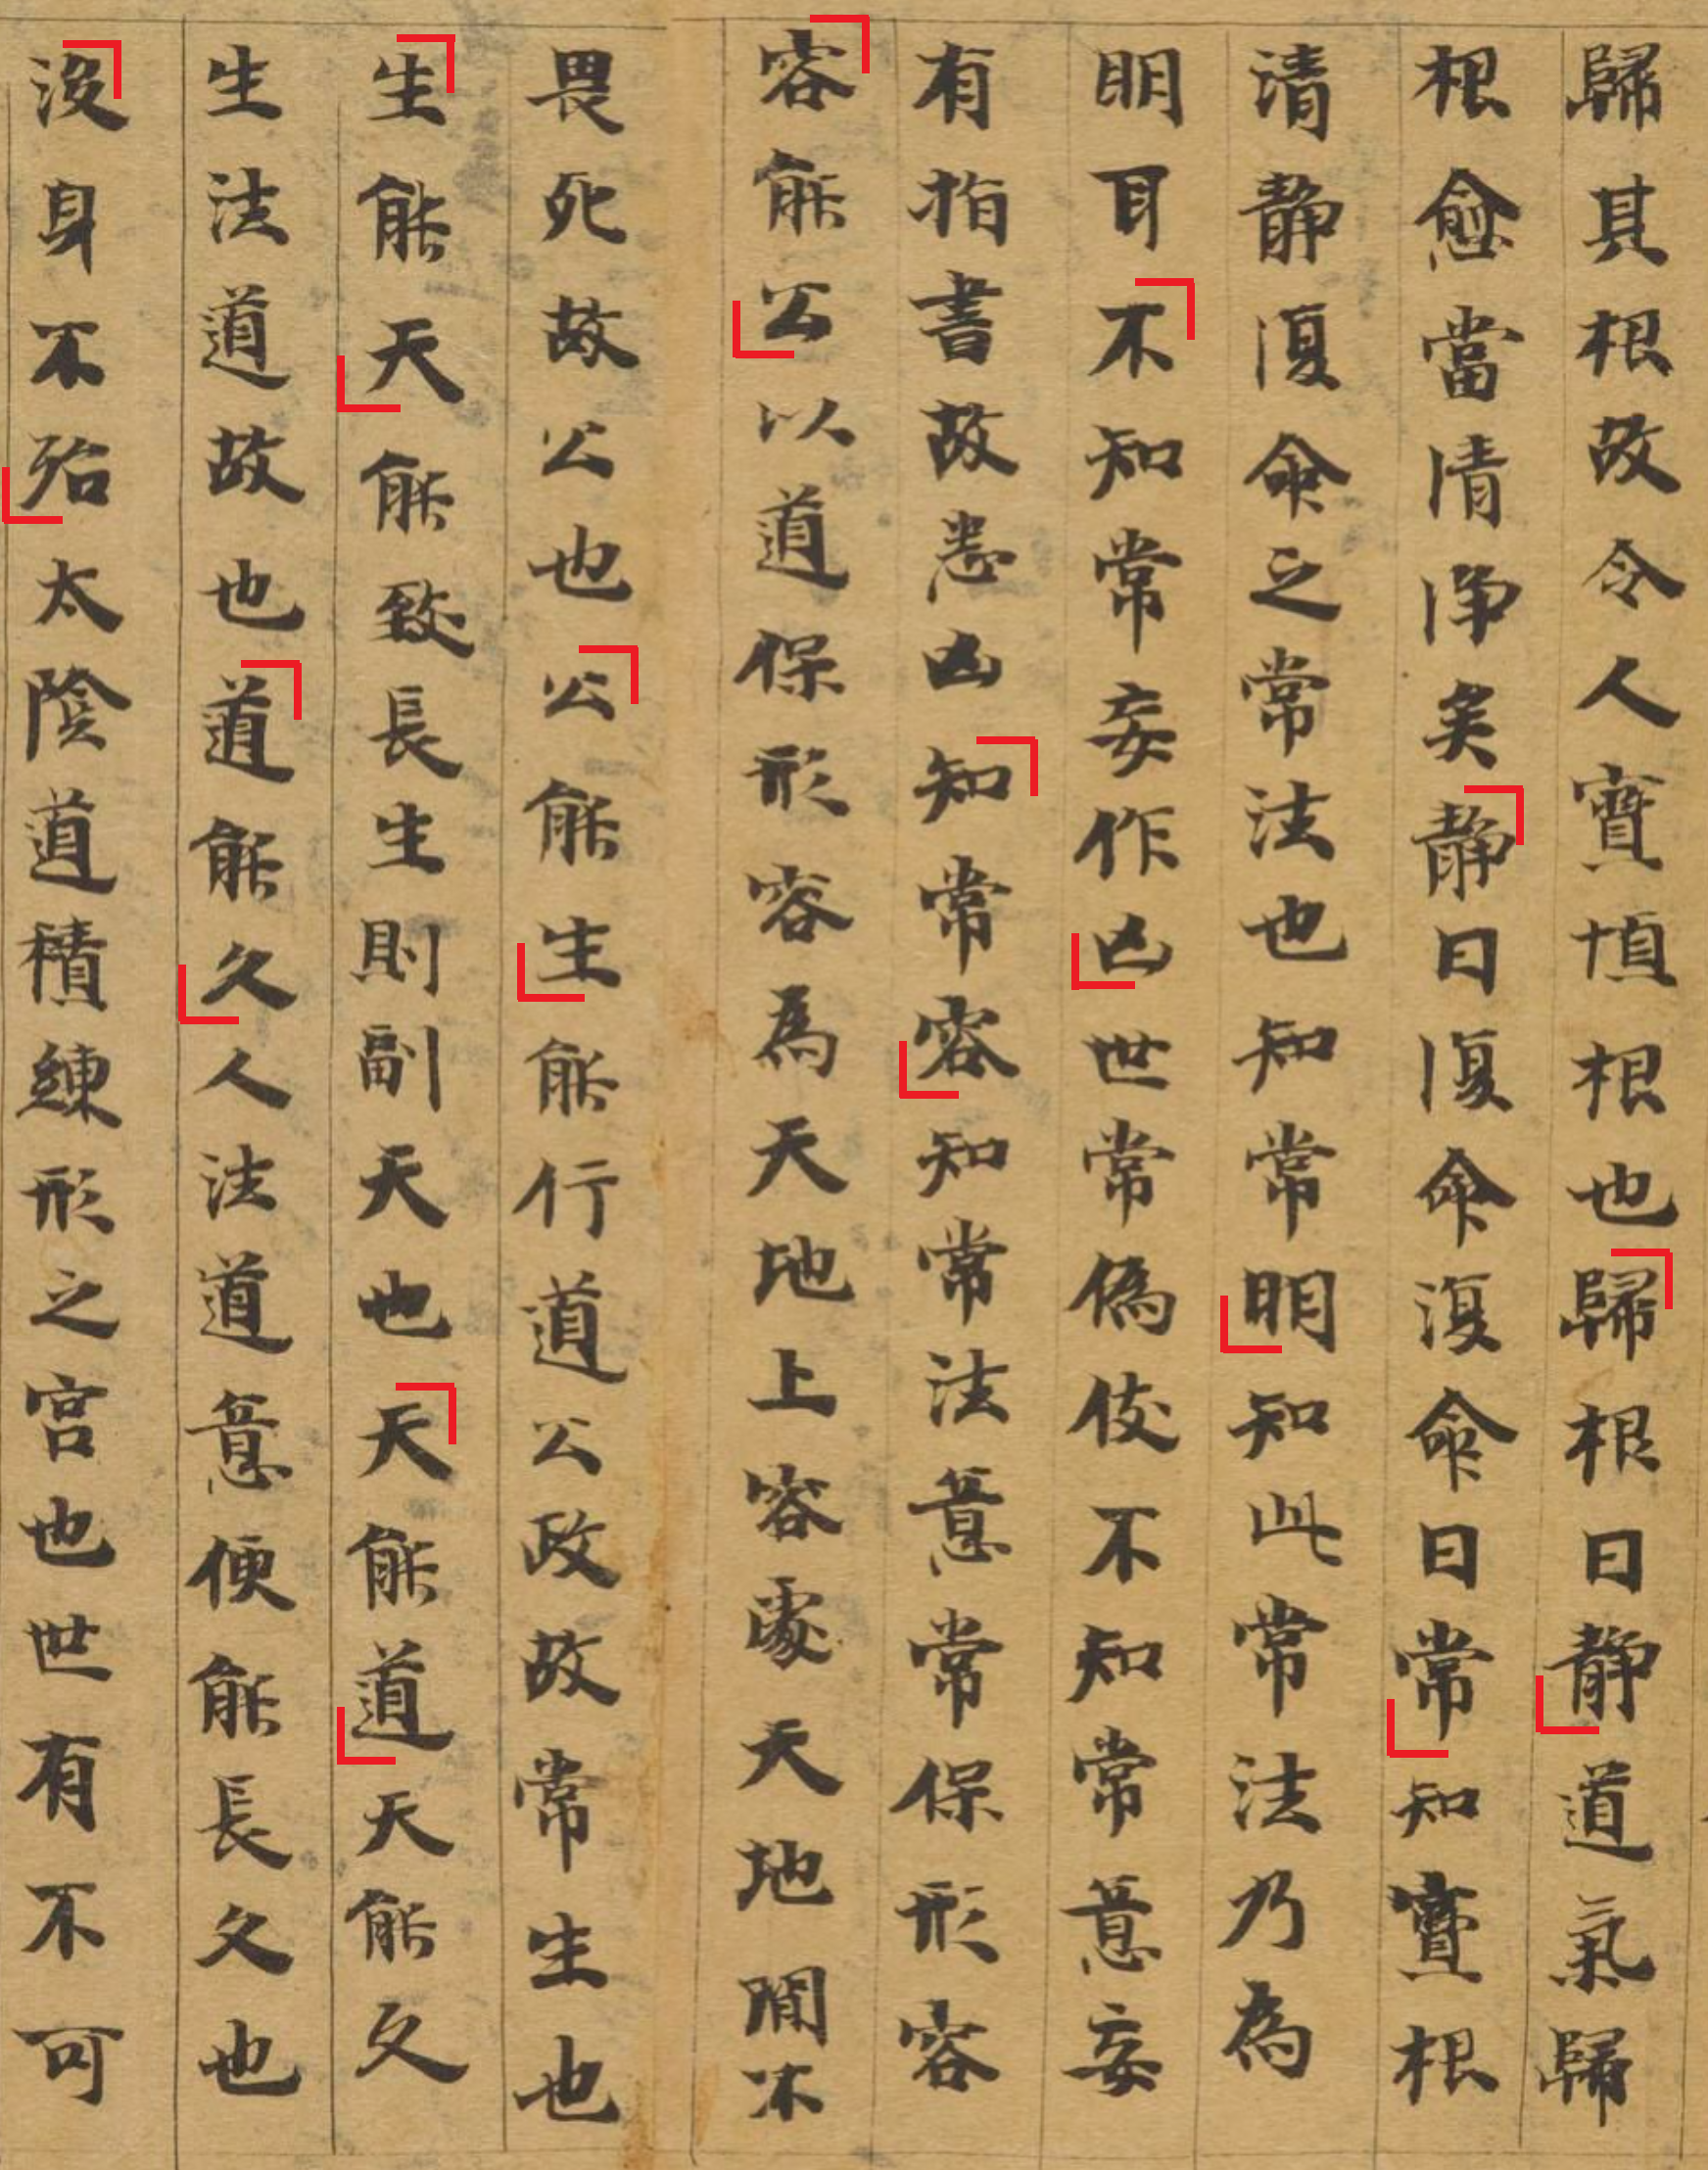 歸其根故令人寶慎根也歸根曰靜道氣歸
根愈當清淨矣靜曰復命復命曰常知寶根
清靜復命之常法也知常明知此常法乃為
明耳不知常妄作凶世常偽伎不知常意妄
有指書故悉凶知常容知常法意常保形容
容能公以道保形容為天地上容處天地間不
畏死故公也公能生能行道公政故常生也
生能天能致長生則副天也天能道天能久
生法道故也道能久人法道意便能長久也
沒身不殆太陰道積練形之宮也世有不可